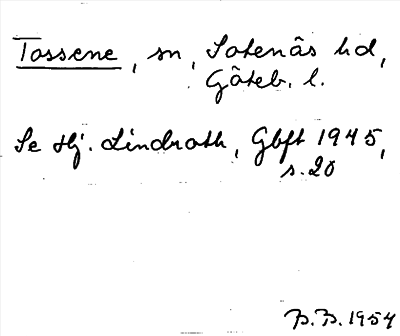 Tossene, sn, Sotenäs hd,
Göteb. l.
Se Hj. Lindroth, Gbft 1945,
s. 20
B.B. 1954